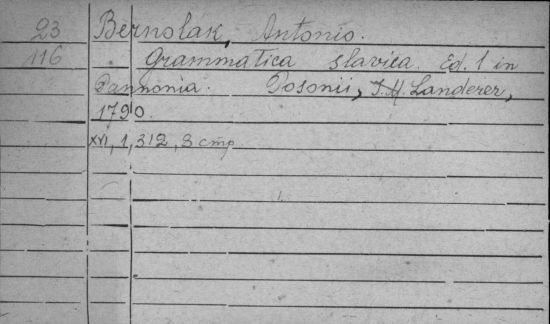 23 Bernolak, Antonio.
116 Grammatica slavica. Ed. 1 in
Pannonia. Posonii, J. M. Landerer,
1790.
XVI, 1, 312, 3 cmp